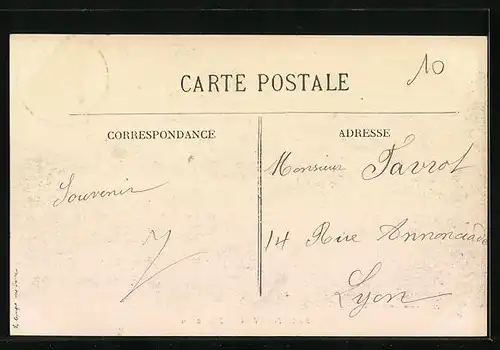 10
CARTE POSTALE
CORRESPONDANCE
ADRESSE
Monsieur Favrot
Souvenir
14 Rue Annonciade
Lyon